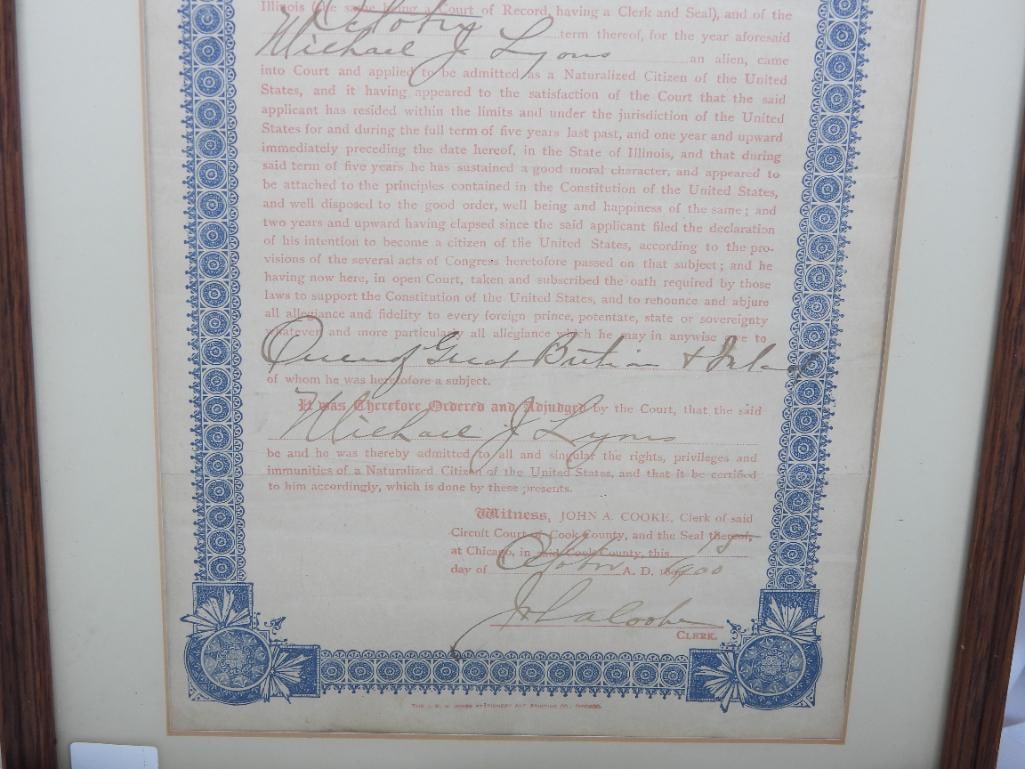 Illinois (the same being a Court of Record, having a Clerk and Seal), and of the
October term thereof, for the year aforesaid
Michael J Lyons an alien, came
into Court and applied to be admitted as a Naturalized Citizen of the United
States, and it having appeared to the satisfaction of the Court that the said
applicant has resided within the limits and under the jurisdiction of the United
States for and during the full term of five years last past, and one year and upward
immediately preceding the date hereof, in the State of Illinois, and that during
said term of five years he has sustained a good moral character, and appeared to
be attached to the principles contained in the Constitution of the United States,
and well disposed to the good order, well being and happiness of the same; and
two years and upward having elapsed since the said applicant filed the declaration
of his intention to become a citizen of the United States, according to the pro-
visions of the several acts of Congress heretofore passed on that subject; and he
having now here, in open Court, taken and subscribed the oath required by those
laws to support the Constitution of the United States, and to renounce and abjure
all allegiance and fidelity to every foreign prince, potentate, state or sovereignty
whatever, and more particularly all allegiance which he may in anywise owe to
Queen of Great Britain & Ireland
of whom he was heretofore a subject.
It was Therefore Ordered and Adjudged by the Court, that the said
Michael J Lyons
be and he was thereby admitted to all and singular the rights, privileges and
immunities of a Naturalized Citizen of the United States, and that it be certified
to him accordingly, which is done by these presents.
Witness, JOHN A. COOKE, Clerk of said
Circuit Court of Cook County, and the Seal thereof,
at Chicago, in said Cook County, this 15
day of October A. D. 1900
John A Cooke
CLERK.